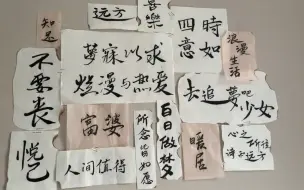 知足
远方
喜樂
四時
意如
浪漫
生活
不要丧
夢寐以求
爛漫与热爱
去追夢吧
少女
悦己
富婆
人间值得
所念
皆如愿
白日做梦
暖居
心之所往